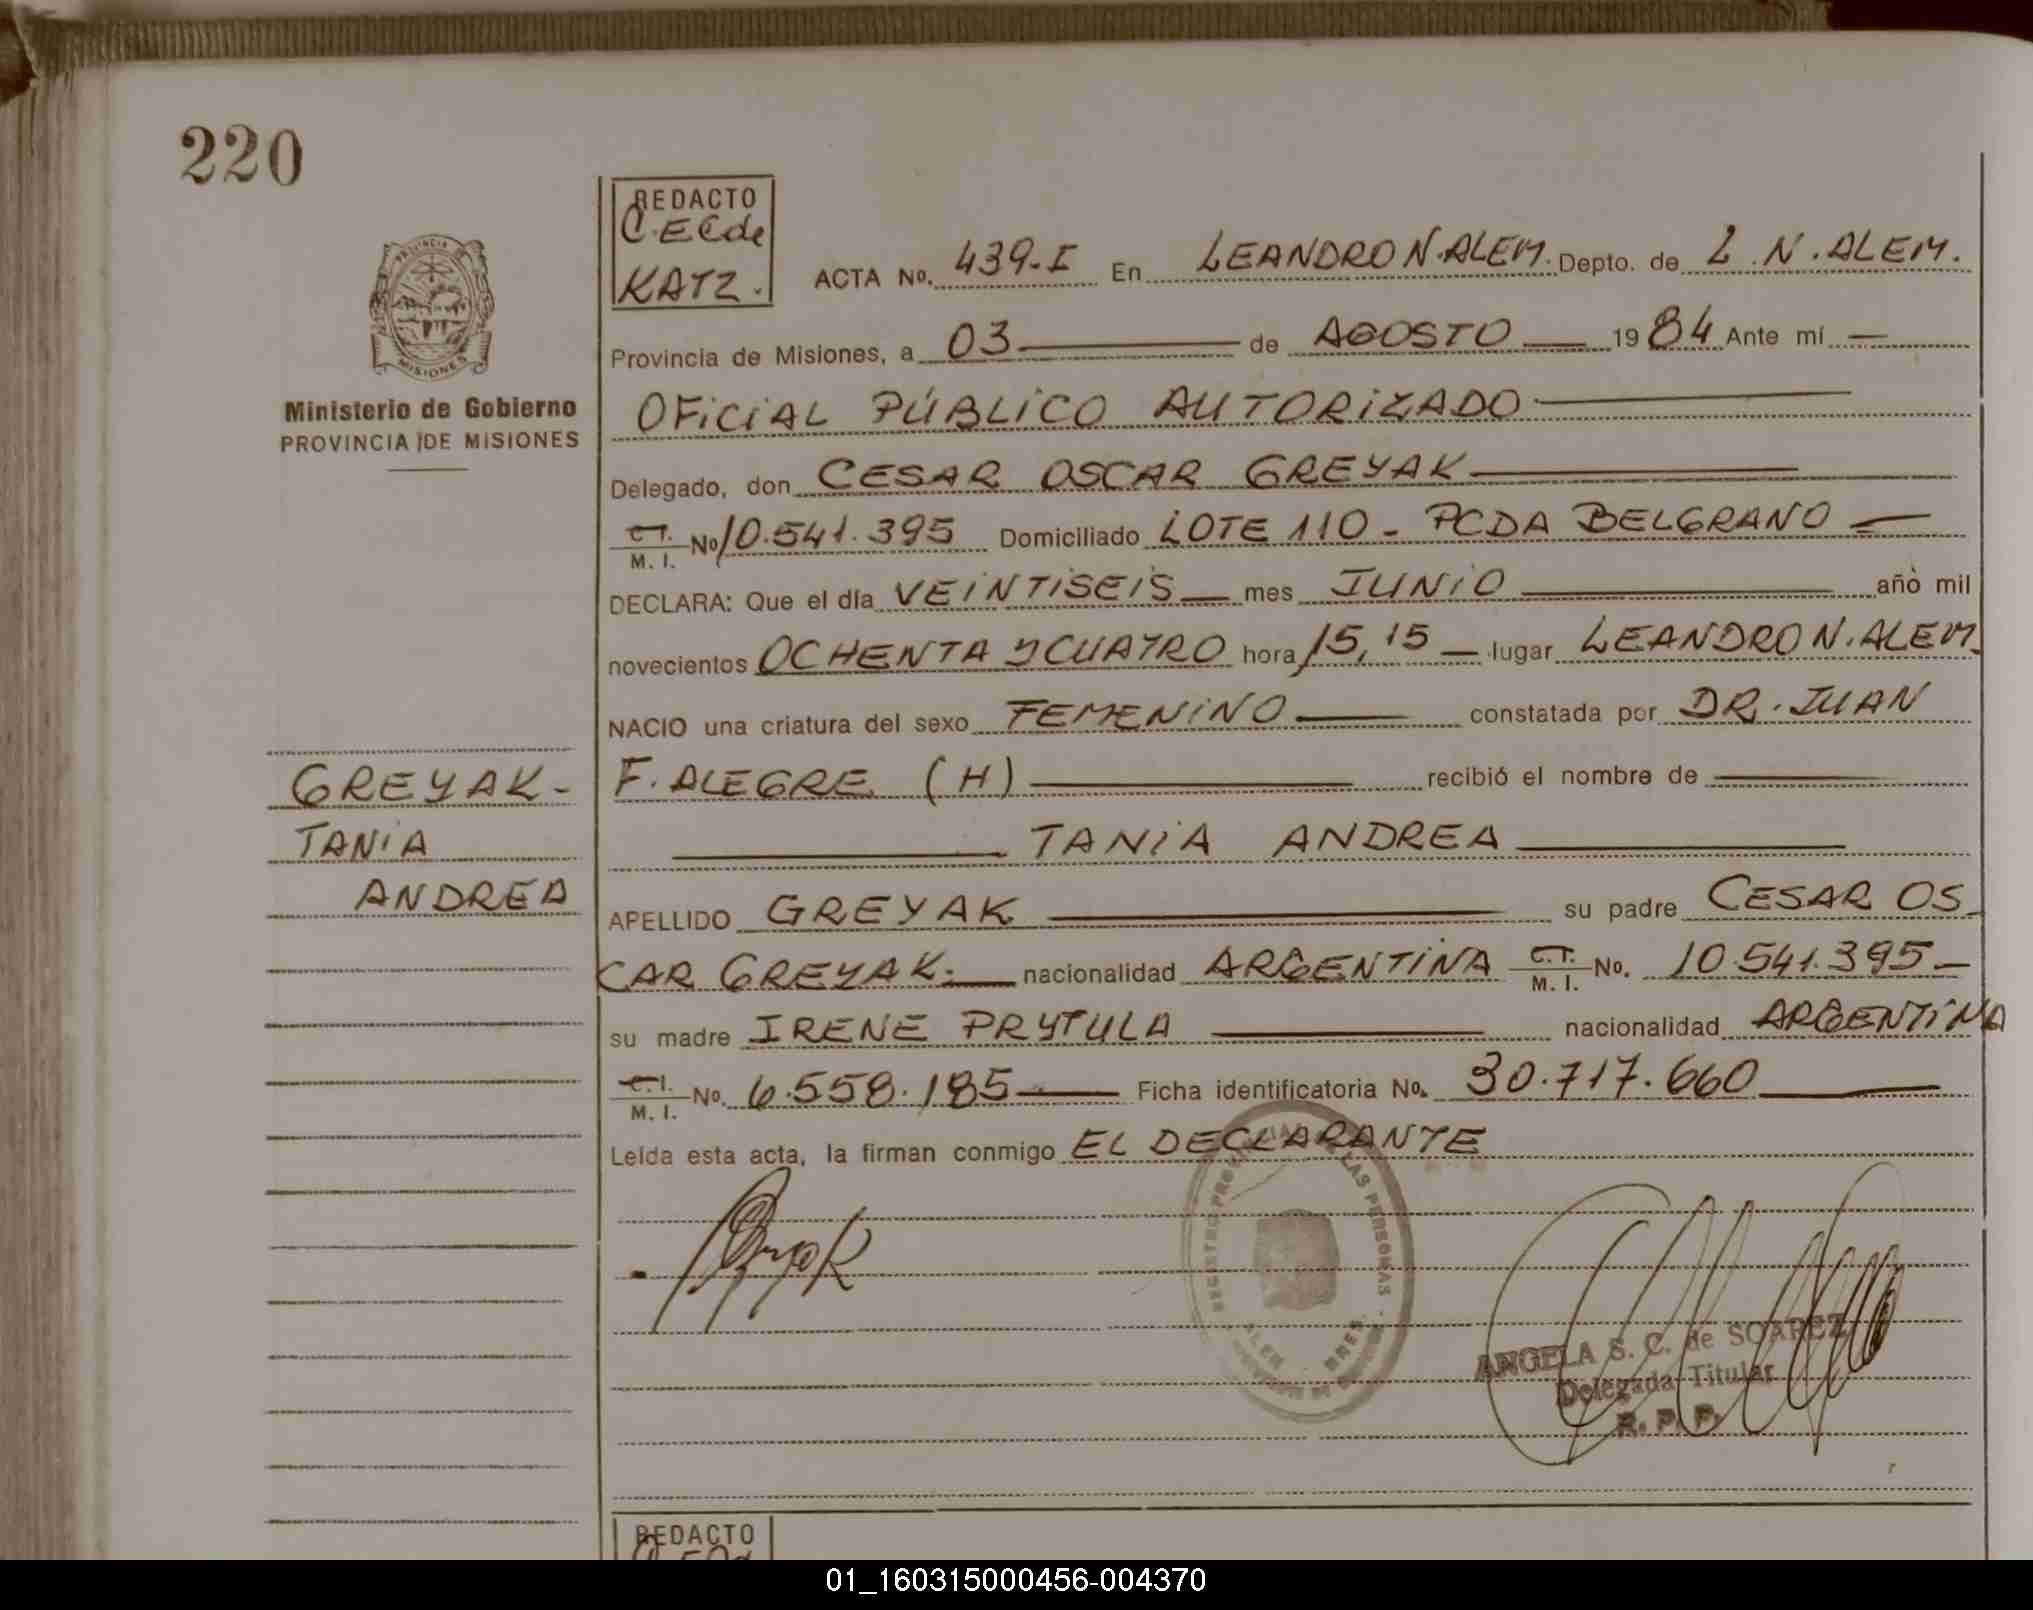 220
REDACTO
C.ECde
KATZ.
PROVINCIA
MISIONES
Ministerio de Gobierno
PROVINCIA DE MISIONES
ACTA No. 439-I En LEANDRO N. ALEM. Depto. de L. N. ALEM.
Provincia de Misiones, a 03 de AGOSTO 1984 Ante mí
OFICIAL PÚBLICO AUTORIZADO
Delegado, don CESAR OSCAR GREYAK
C.I. M. I. No 10.541.395 Domiciliado LOTE 110 - PCDA BELGRANO
DECLARA: Que el día VEINTISEIS mes JUNIO año mil
novecientos OCHENTA Y CUATRO hora 15,15 lugar LEANDRO N. ALEM.
NACIO una criatura del sexo FEMENINO constatada por DR. JUAN
F. ALEGRE (H) recibió el nombre de
TANIA ANDREA
APELLIDO GREYAK su padre CESAR OS-
CAR GREYAK. nacionalidad ARGENTINA C.I. M. I. No. 10.541.395
su madre IRENE PRYTULA nacionalidad ARGENTINA
C.I. M. I. No. 6.558.185 Ficha identificatoria No. 30.717.660
Leída esta acta, la firman conmigo EL DECLARANTE
GREYAK-
TANIA
ANDREA
REGISTRO PROVINCIAL DE LAS PERSONAS
ALEM - MNES.
ANGELA S. C. de SOAREZ
Delegada Titular
R. P. P.
REDACTO
01_160315000456-004370